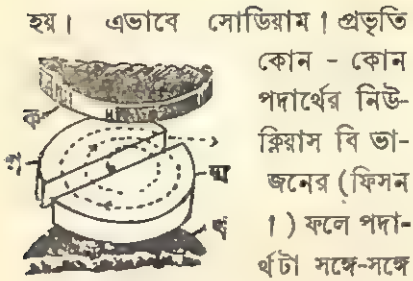 হয়। এভাবে সোডিয়াম । প্রভৃতি
কোন - কোন
পদার্থের নিউ-
ক্লিয়াস বি ভা-
জনের (ফিসন
। ) ফলে পদা-
র্থটা সঙ্গে-সঙ্গে
ক
গ
ঘ
খ